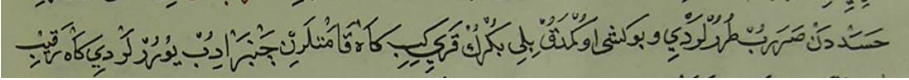 حسددن صررب طررلردي و بوكشى اوكمدق بيلى بكرك قريكبب كاه قامتلرن چنبر ادب يوررلردي كاه ترقيب